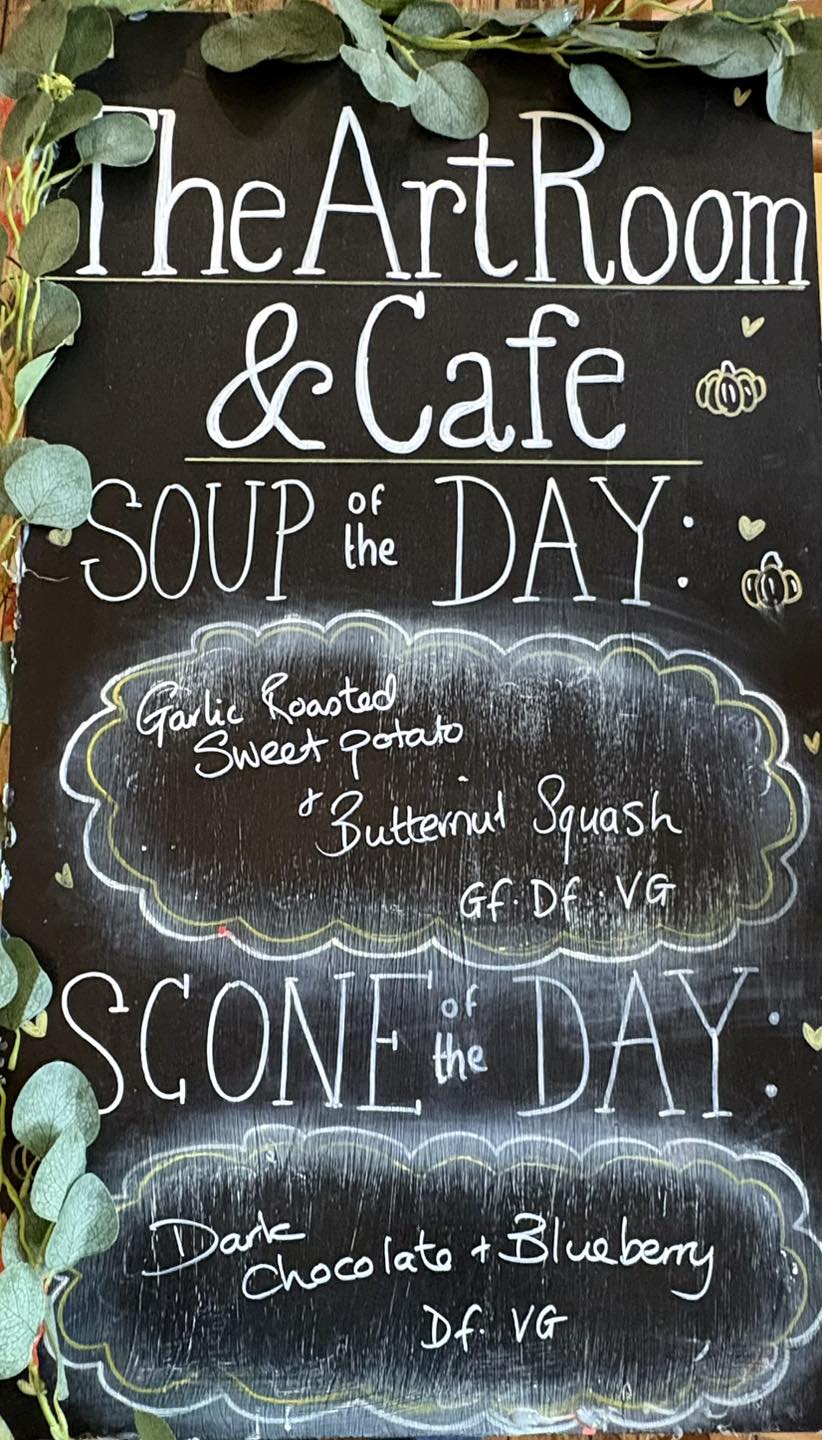 The Art Room
& Cafe
SOUP of the DAY:
Garlic Roasted
Sweet potato
+ Butternut Squash
Gf. Df. VG
SCONE of the DAY:
Dark
Chocolate + Blueberry
Df. VG